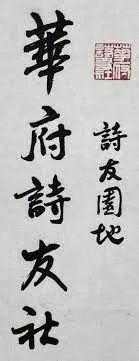 詩友園地
華府詩友社